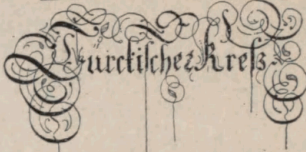 Turckischer Kreß.